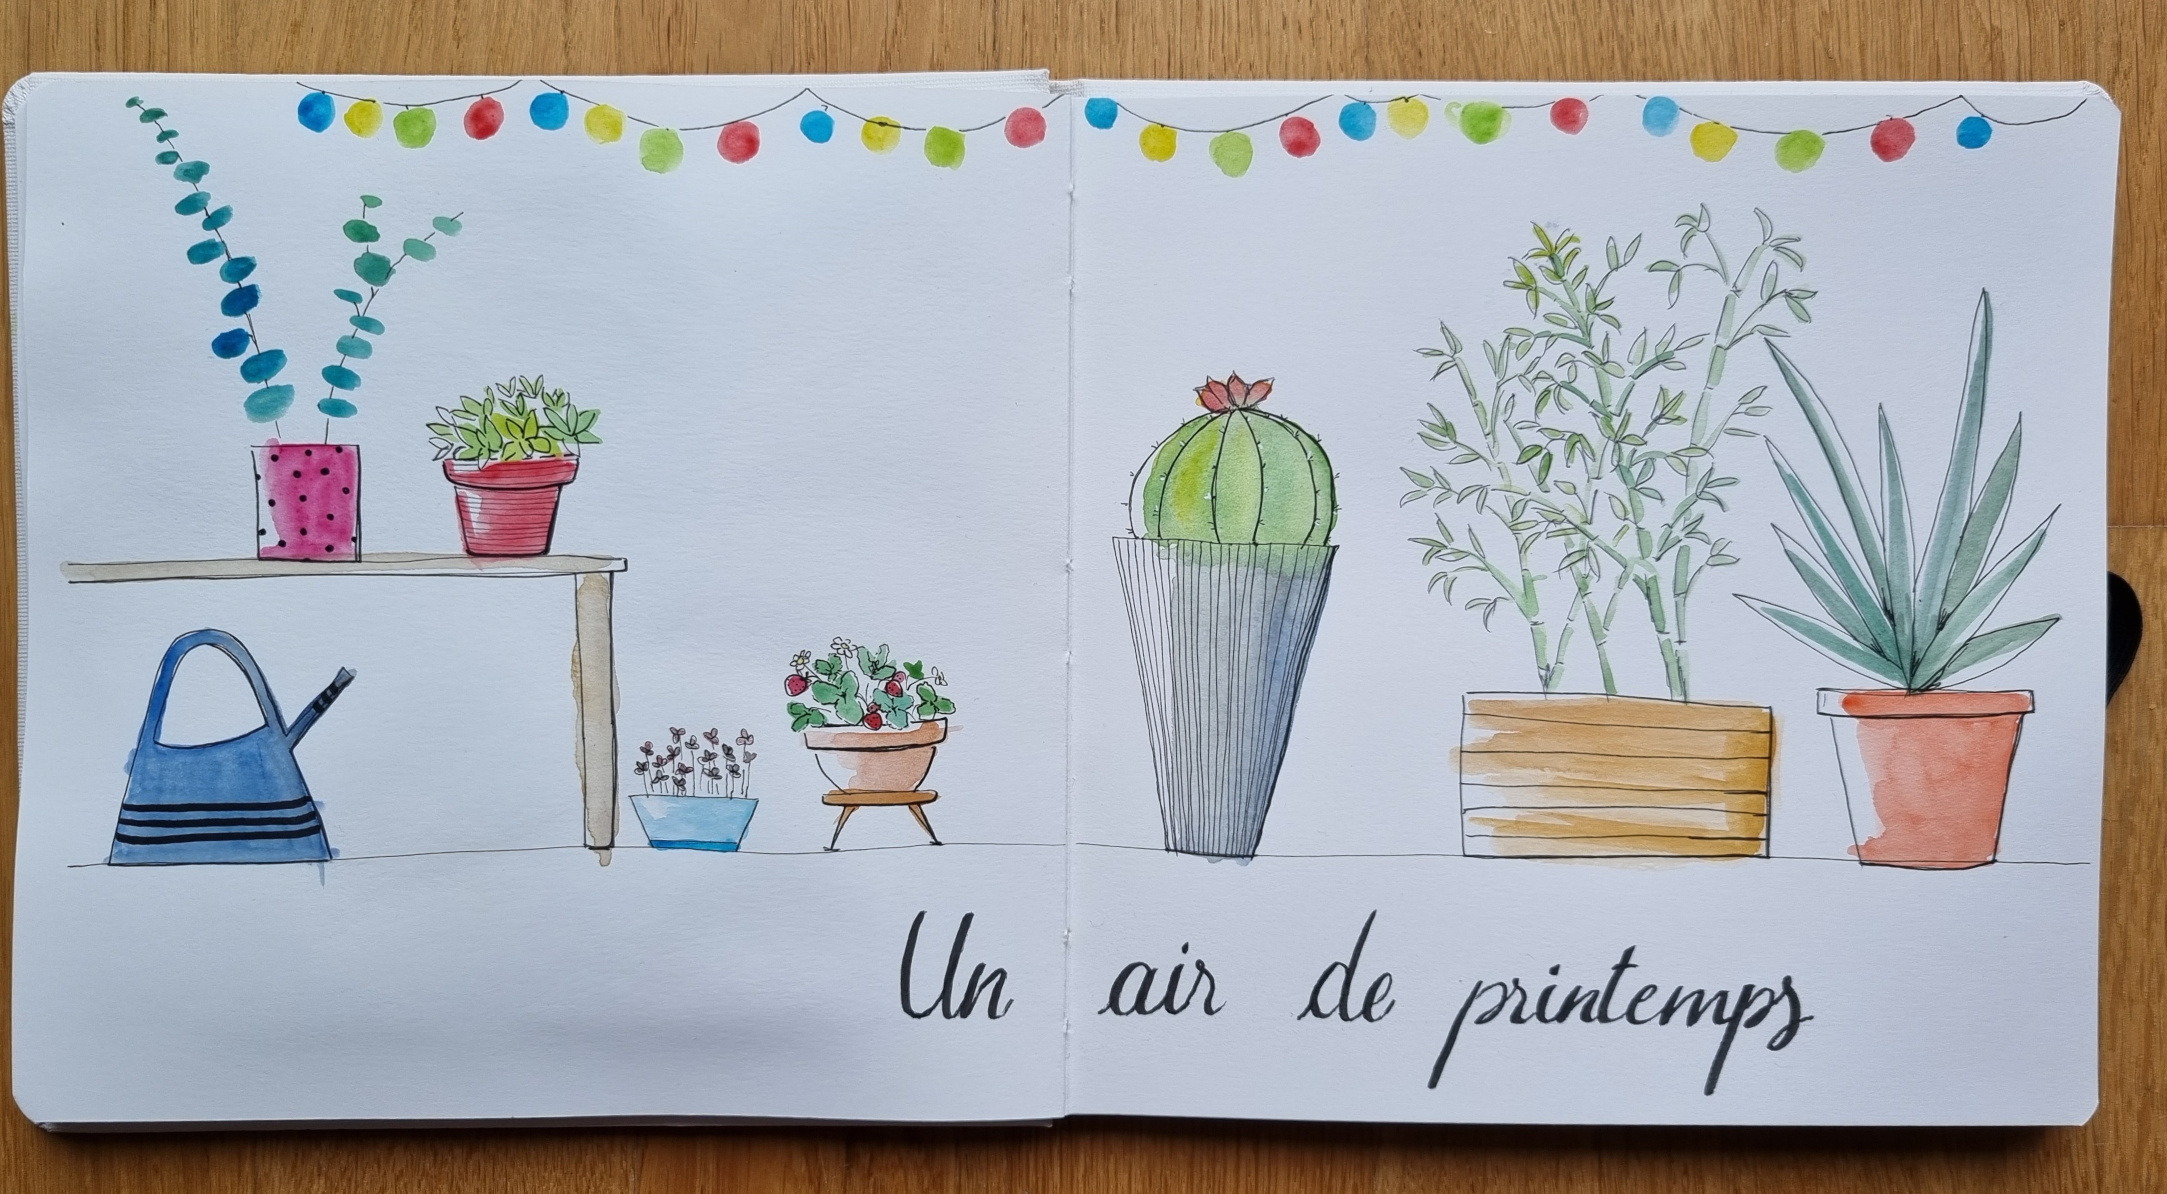 Un air de printemps